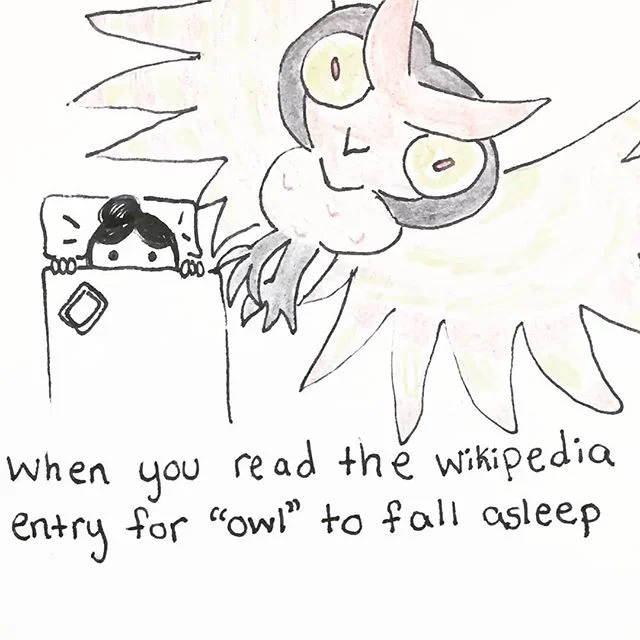 When you read the wikipedia
entry for "owl" to fall asleep